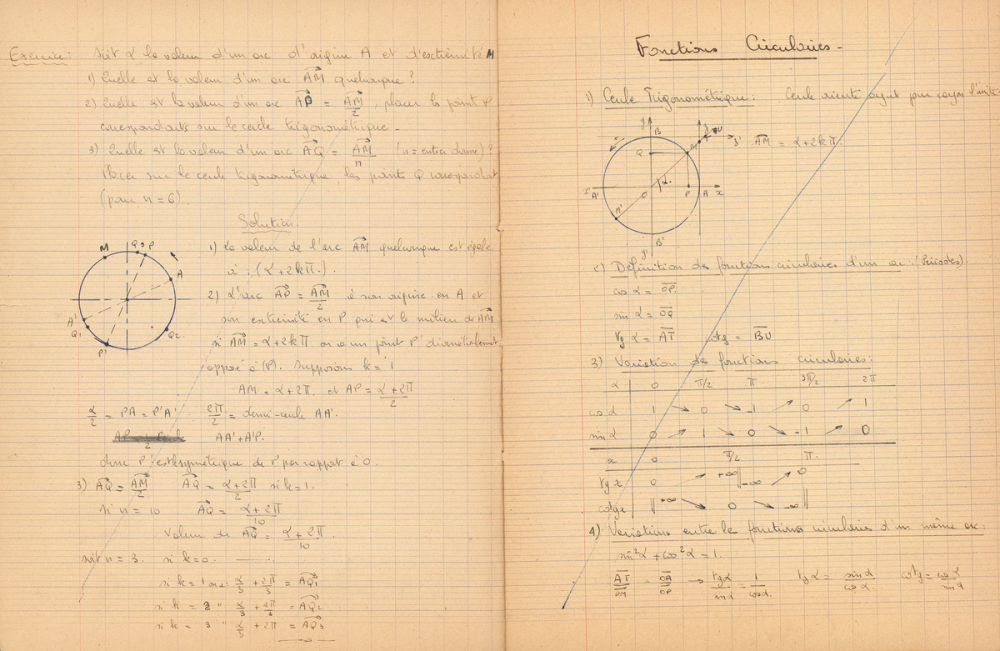 Exercice: Soit α la valeur d'un arc d'origine A et d'extrémité M
1) Quelle est la valeur d'un arc AM quelconque ?
2) Quelle est la valeur d'un arc AP = AM/2, placer le point P
correspondants sur le cercle trigonométrique.
3) Quelle est la valeur d'un arc AQ = AM/n (n = entier donné) ?
Placer sur le cercle trigonométrique, les points Q correspondant
(pour n = 6).
Solution.
M Q3 P
A
A'
Q1
P'
Q2
1) La valeur de l'arc AM quelconque est égale
à : (α + 2kπ.)
2) L'arc AP = AM/2 a son origine en A et
son extrémité en P qui est le milieu de AM
si AM = α + 2kπ on a un point P' diamétralement
opposé à (P). Supposons k = 1
AM = α + 2π et AP = α + 2π/2
α/2 = PA = P'A' 2π/2 = demi-cercle AA'.
AA' + A'P'
donc P' est symétrique de P par rapport à O.
3) AQ = AM/2 AQ = α + 2π/2 si k = 1.
si n = 10 AQ = α + 2π/10
Valeur de AQ = α + 2π/10
soit n = 3. si k = 0.
si k = 1 on a α/3 + 2π/3 = AQ1
si k = 2 " α/3 + 2π/3 = AQ2
si k = 3 " α/3 + 2π = AQ3
Fonctions Circulaires -
1) Cercle Trigonométrique : Cercle orienté ayant pour rayon l'unité
y B T U
Q M
AM = α + 2kπ
x' A' O α P A x
A'
B'
y'
2) Définition des fonctions circulaires d'un arc : (Périodes)
cos α = OP.
sin α = OQ
tg α = AT cotg = BU
3) Variation des fonctions circulaires :
α 0 π/2 π 3π/2 2π
cos α 1 ↘ 0 ↘ -1 ↗ 0 ↗ 1
sin α 0 ↗ 1 ↘ 0 ↘ -1 ↗ 0
x 0 π/2 π.
tg x 0 ↗ +∞ || -∞ ↗ 0
cotg x || +∞ ↘ 0 ↘ -∞ ||
4) Variations entre les fonctions circulaires d'un même arc.
sin²α + cos²α = 1.
AT/PM = OA/OP → tg α/sin α = 1/cos α. tg α = sin α/cos α. cotg = cos α/sin α